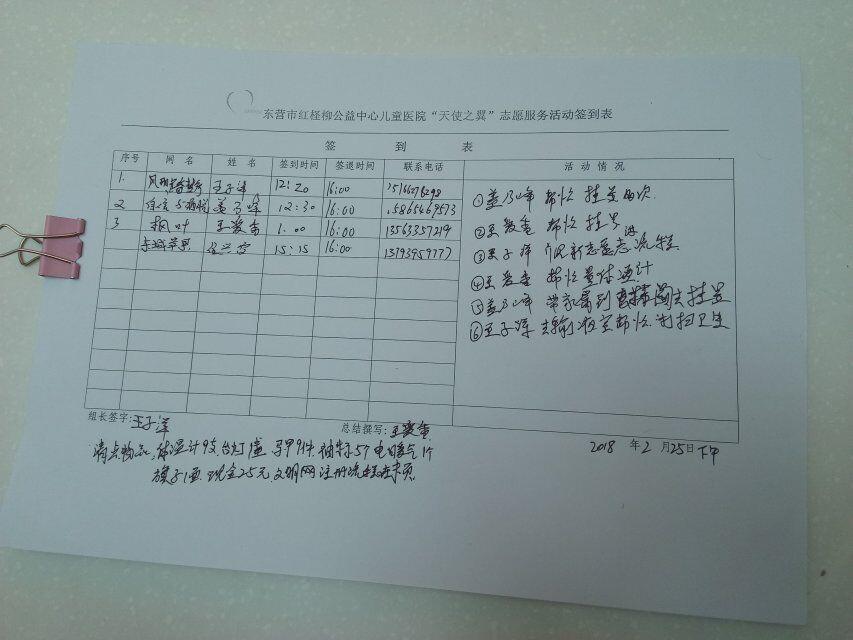 东营市红柽柳公益中心儿童医院“天使之翼”志愿服务活动签到表
签 到 表
序号 网 名 姓 名 签到时间 签退时间 联系电话 活 动 情 况
1. 王子洋 12:20 16:00
2 12:30 16:00 15865469573
3 枫叶 王爱香 1.00 16:00 13563357219
东城苹果 15:15 16:00 13793959777
①盖乃峰 帮忙 挂号两次
②王爱香 帮忙 挂号
③王子洋 介绍新志愿者流程
④王爱香 帮忙量体温计
⑤盖乃峰 带家属到 去挂号
⑥王子洋 去输液室帮忙 打扫卫生
组长签字:王子洋
总结撰写:王爱香
清点物品 体温计9支 马甲9件 袖标57 电暖气1个
旗子1面 现金25元 文明网注册流程
2018 年2 月25日下午